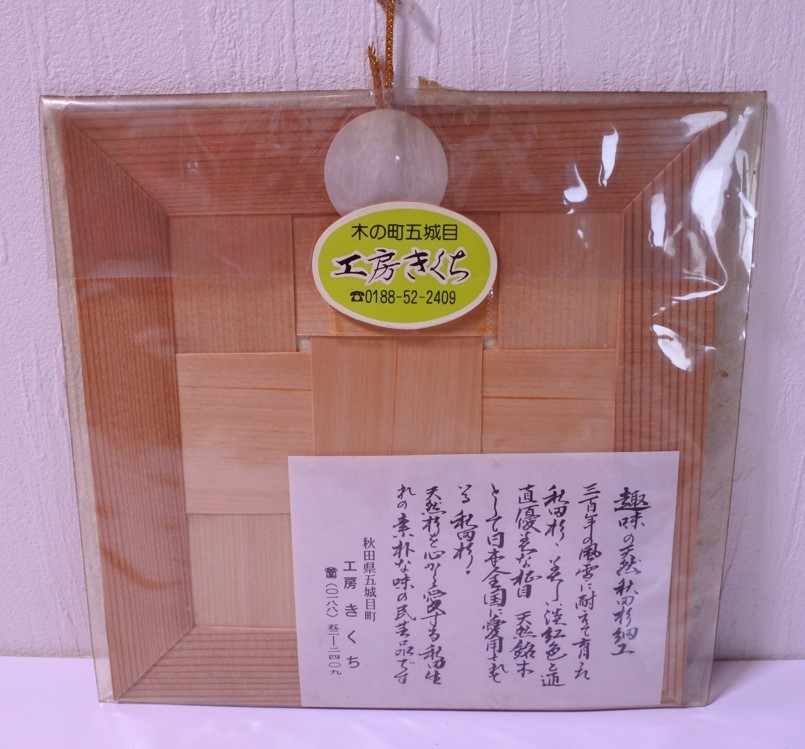 木の町五城目
工房きくち
☎0188-52-2409
趣味の天然秋田杉細工
三百年の風雪に耐えて育った
秋田杉、美しい淡紅色と通
直優美な柾目 天然銘木
として日本全国に愛用される
秋田杉。
天然杉を心から愛する秋田生
れの素朴な味の民芸品です
秋田県五城目町
工房きくち
☎(〇一八八)五二ー二四〇九